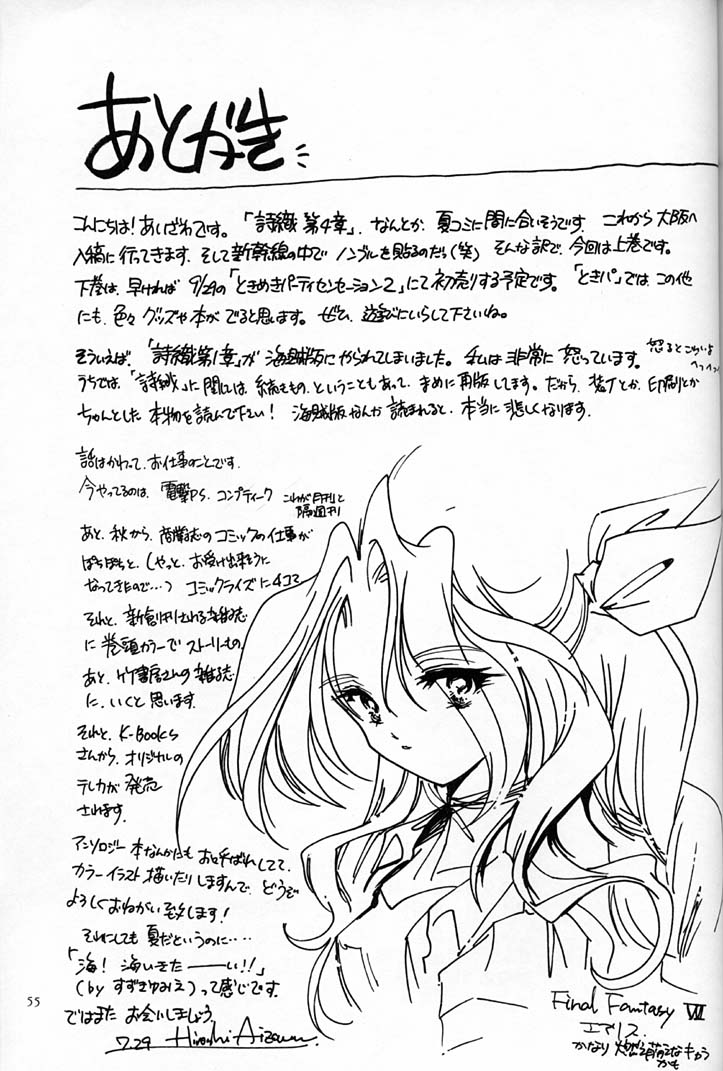 あとがき
こんにちは!あいざわです。「詩織 第4章」、なんとか、夏コミに間に合いそうです。これから大阪へ
入稿に行ってきます。そして新幹線の中でノンブルを貼るのだら(笑) そんな訳で、今回は上巻です。
下巻は、早ければ 9/29の「ときめきパーティセンセーション2」にて初売りする予定です。「ときパ」では、この他
にも、色々グッズや本がでると思います。ぜひ、遊びにいらして下さいね。
そういえば、「詩織第1章」が海賊版にやられてしまいました。私は非常に怒っています。
怒るとこわいよ
へっへっへっ
うちでは、「詩織」に関しては、続きもの、ということもあって、まめに再版します。だから、装丁とか、印刷とか
ちゃんとした本物を読んで下さい! 海賊版なんか読まれると、本当に悲しくなります。
話はかわって、お仕事のことです。
今やってるのは、電撃PS、コンプティーク
これが月刊と
隔週刊
あと、秋から、商業誌のコミックの仕事が
ぽちぽちと、(やっと、お受け出来そうに
なってきたので…) コミックライズに4コマ
それと、新創刊される雑誌
に巻頭カラーでストーリーもの。
あと、竹書房さんの雑誌
に、いくと思います。
それと、K-Books
さんから、オリジナルの
テレカが発売
されます。
アンソロジー本なんかにも お呼ばれしてて、
カラーイラスト描いたりしますんで、どうぞ
よろしくおねがい致します!
それにしても夏だというのに‥‥
「海! 海いきたーーい!!」
(by すずきゆみえ)って感じです。
ではまた お会いしましょう。
7.29 Hiroshi Aizawa.
Final Fantasy VII
エアリス.
かなり 燃え萌えなキャラ
かも
55